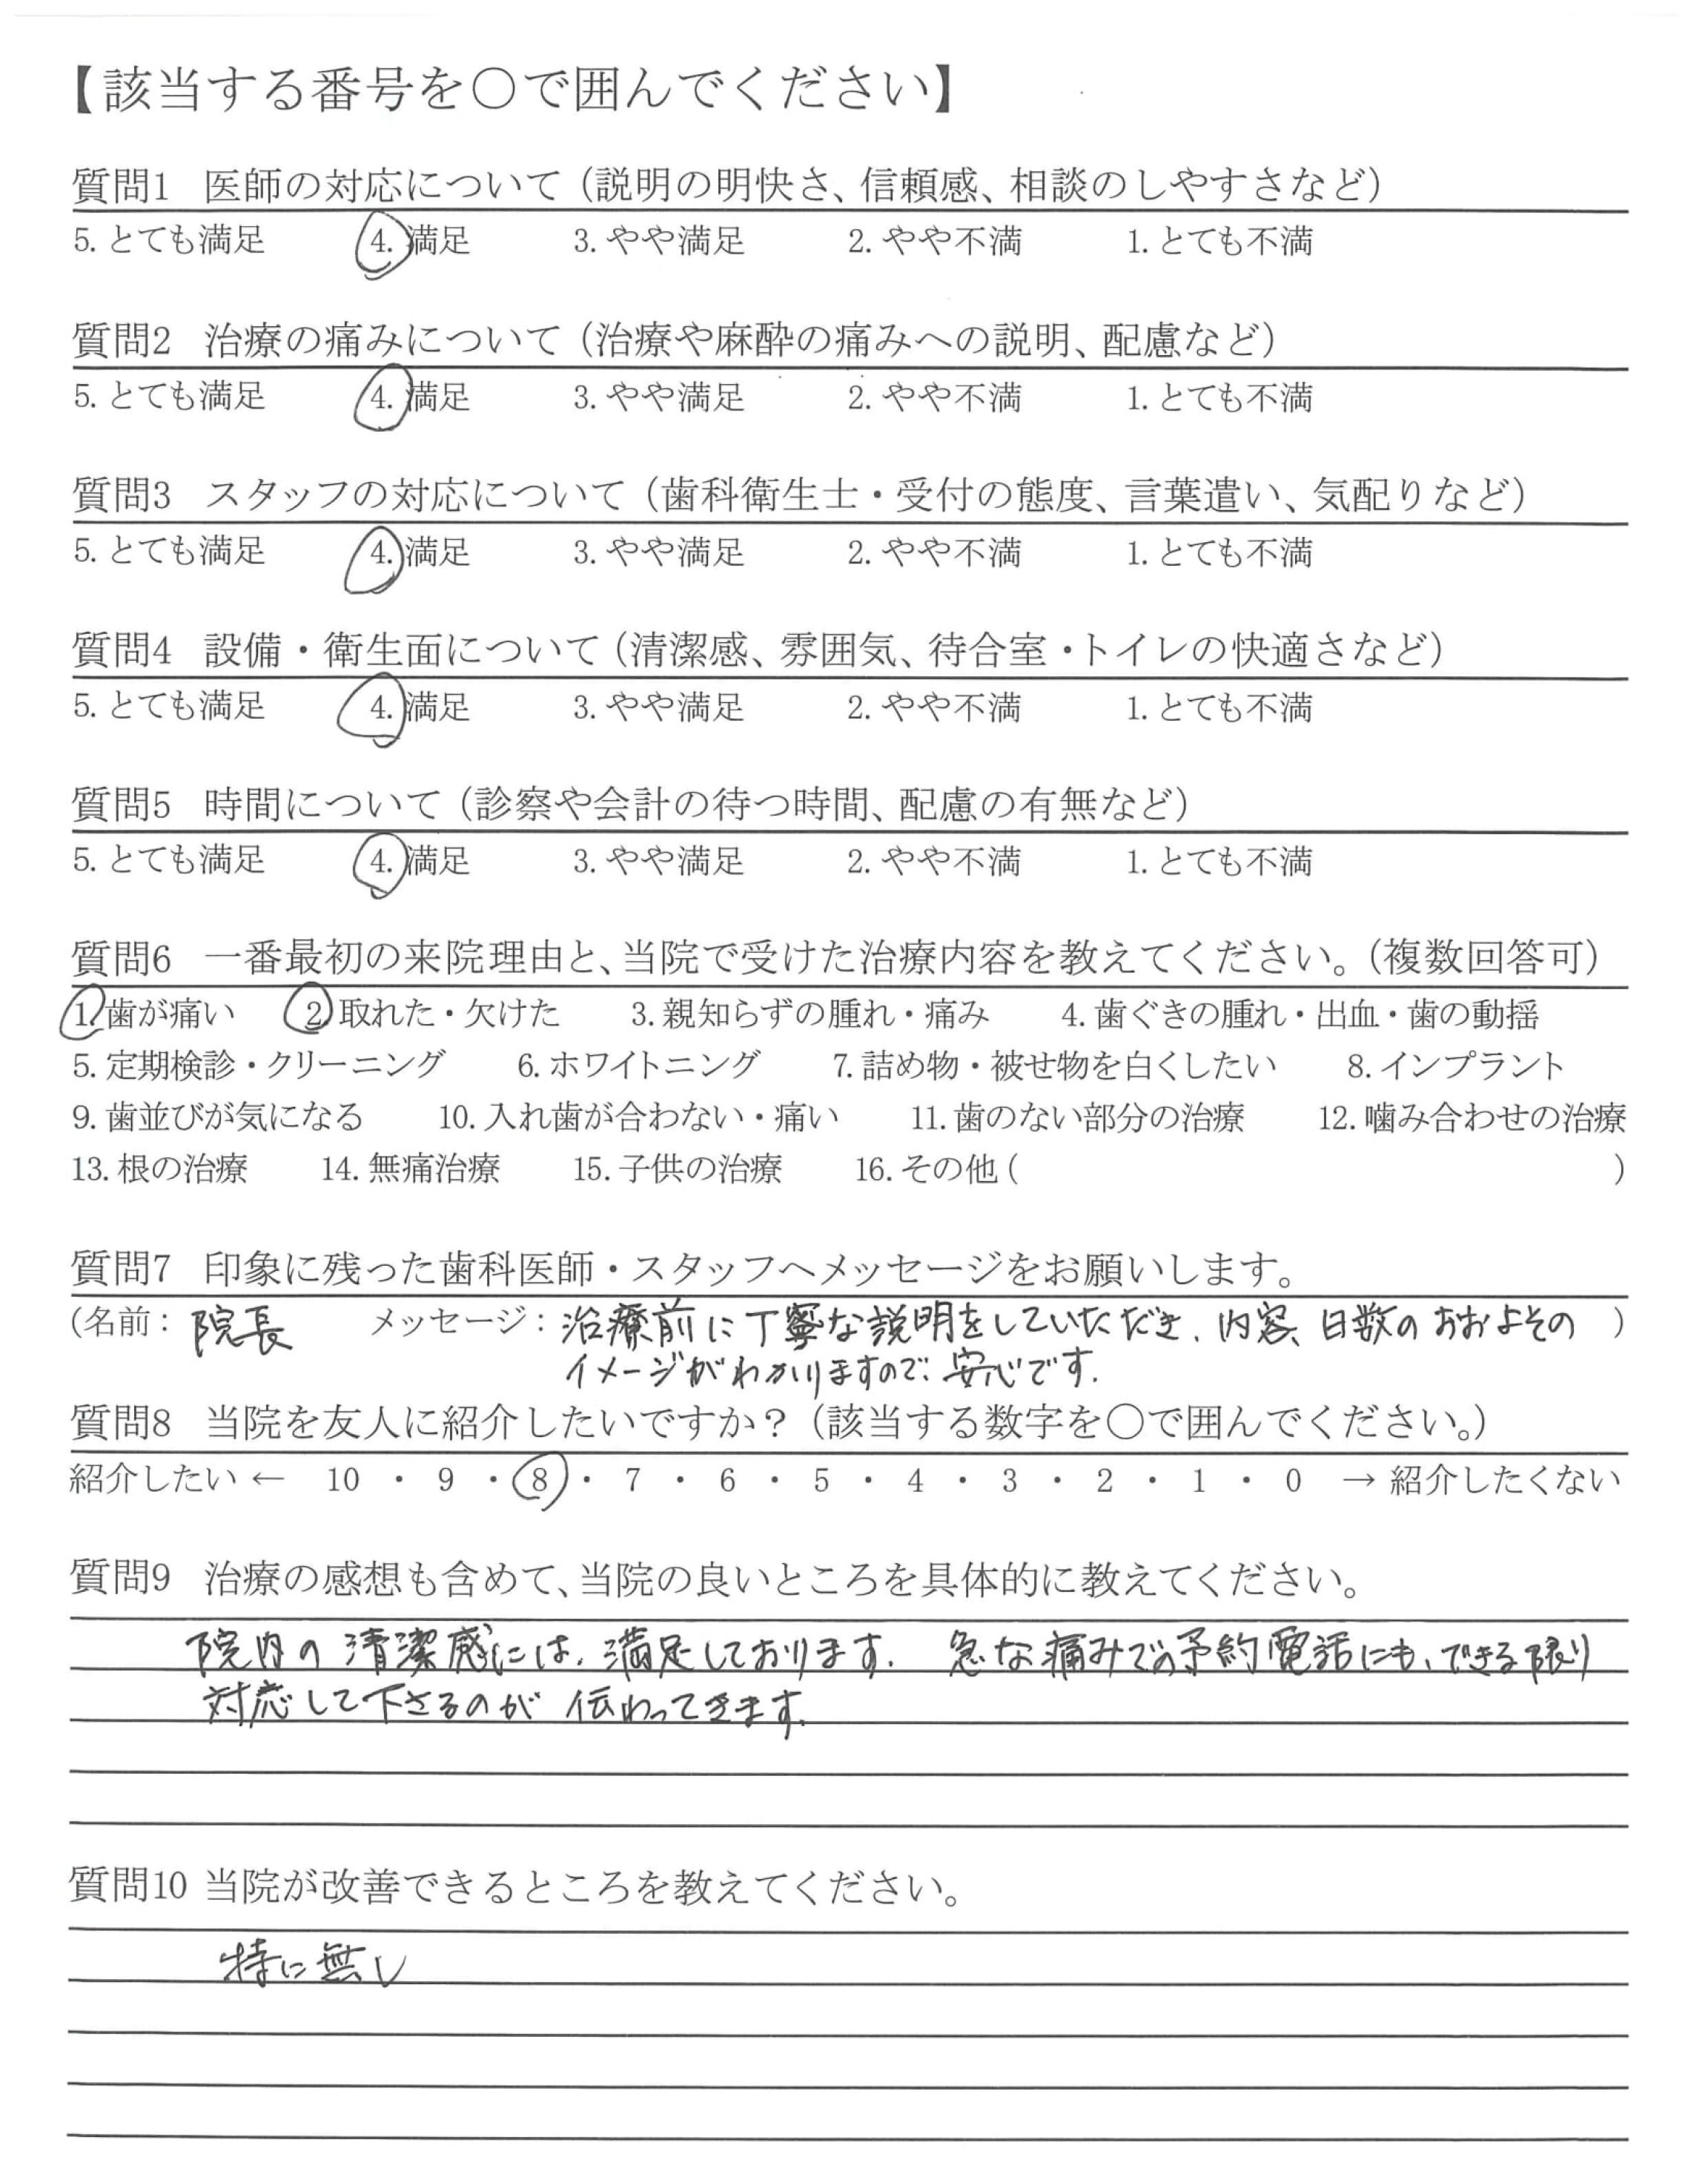 【該当する番号を〇で囲んでください】
質問1 医師の対応について（説明の明快さ、信頼感、相談のしやすさなど）
5. とても満足 4. 満足 3. やや満足 2. やや不満 1. とても不満
質問2 治療の痛みについて（治療や麻酔の痛みへの説明、配慮など）
5. とても満足 4. 満足 3. やや満足 2. やや不満 1. とても不満
質問3 スタッフの対応について（歯科衛生士・受付の態度、言葉遣い、気配りなど）
5. とても満足 4. 満足 3. やや満足 2. やや不満 1. とても不満
質問4 設備・衛生面について（清潔感、雰囲気、待合室・トイレの快適さなど）
5. とても満足 4. 満足 3. やや満足 2. やや不満 1. とても不満
質問5 時間について（診察や会計の待つ時間、配慮の有無など）
5. とても満足 4. 満足 3. やや満足 2. やや不満 1. とても不満
質問6 一番最初の来院理由と、当院で受けた治療内容を教えてください。（複数回答可）
1. 歯が痛い 2. 取れた・欠けた 3. 親知らずの腫れ・痛み 4. 歯ぐきの腫れ・出血・歯の動揺
5. 定期検診・クリーニング 6. ホワイトニング 7. 詰め物・被せ物を白くしたい 8. インプラント
9. 歯並びが気になる 10. 入れ歯が合わない・痛い 11. 歯のない部分の治療 12. 噛み合わせの治療
13. 根の治療 14. 無痛治療 15. 子供の治療 16. その他（ ）
質問7 印象に残った歯科医師・スタッフへメッセージをお願いします。
（名前：院長 メッセージ：治療前に丁寧な説明をしていただき、内容、日数のおおよその ）
イメージがわかりますので、安心です。
質問8 当院を友人に紹介したいですか？（該当する数字を〇で囲んでください。）
紹介したい ← 10 ・ 9 ・ 8 ・ 7 ・ 6 ・ 5 ・ 4 ・ 3 ・ 2 ・ 1 ・ 0 → 紹介したくない
質問9 治療の感想も含めて、当院の良いところを具体的に教えてください。
院内の清潔感には、満足しております。 急な痛みでの予約電話にも、できる限り
対応して下さるのが伝わってきます。
質問10 当院が改善できるところを教えてください。
特に無し